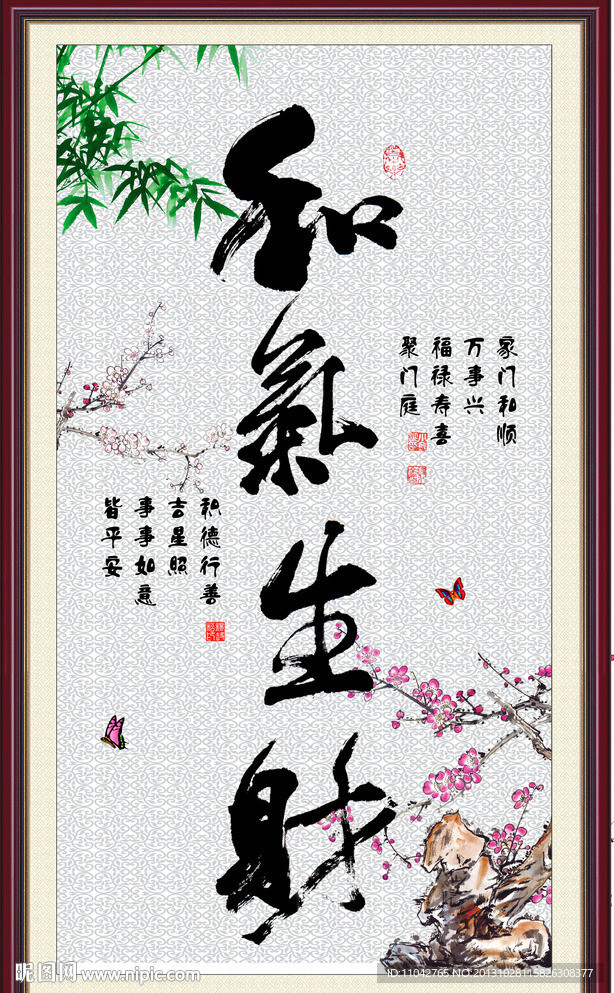 和氣生財
家门和顺
万事兴
福禄寿喜
聚门庭
积德行善
吉星照
事事如意
皆平安
昵图网 www.nipic.com
ID:11042765 NO:20131028115826308377